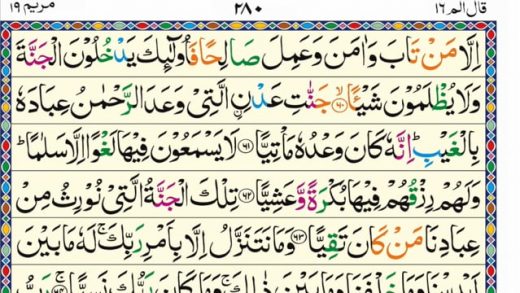 قال الم ١٦ ٢٨٠ مريم ١٩
اِلَّا مَنْ تَابَ وَاٰمَنَ وَعَمِلَ صَالِحًا فَاُولٰٓئِكَ يَدْخُلُوْنَ الْجَنَّةَ
وَلَا يُظْلَمُوْنَ شَيْـًٔا ﴿٦٠﴾ۙ جَنّٰتِ عَدْنِ ࣙالَّتِيْ وَعَدَ الرَّحْمٰنُ عِبَادَهٗ
بِالْغَيْبِ ؕ اِنَّهٗ كَانَ وَعْدُهٗ مَاْتِيًّا ﴿٦١﴾ لَا يَسْمَعُوْنَ فِيْهَا لَغْوًا اِلَّا سَلٰمًا ؕ
وَلَهُمْ رِزْقُهُمْ فِيْهَا بُكْرَةً وَّعَشِيًّا ﴿٦٢﴾ تِلْكَ الْجَنَّةُ الَّتِيْ نُوْرِثُ مِنْ
عِبَادِنَا مَنْ كَانَ تَقِيًّا ﴿٦٣﴾ وَمَا نَتَنَزَّلُ اِلَّا بِاَمْرِ رَبِّكَ ۚ لَهٗ مَا بَيْنَ
اَيْدِيْنَا وَمَا خَلْفَنَا وَمَا بَيْنَ ذٰلِكَ ۚ وَمَا كَانَ رَبُّكَ نَسِيًّا ﴿٦٤﴾ۚ رَبُّ